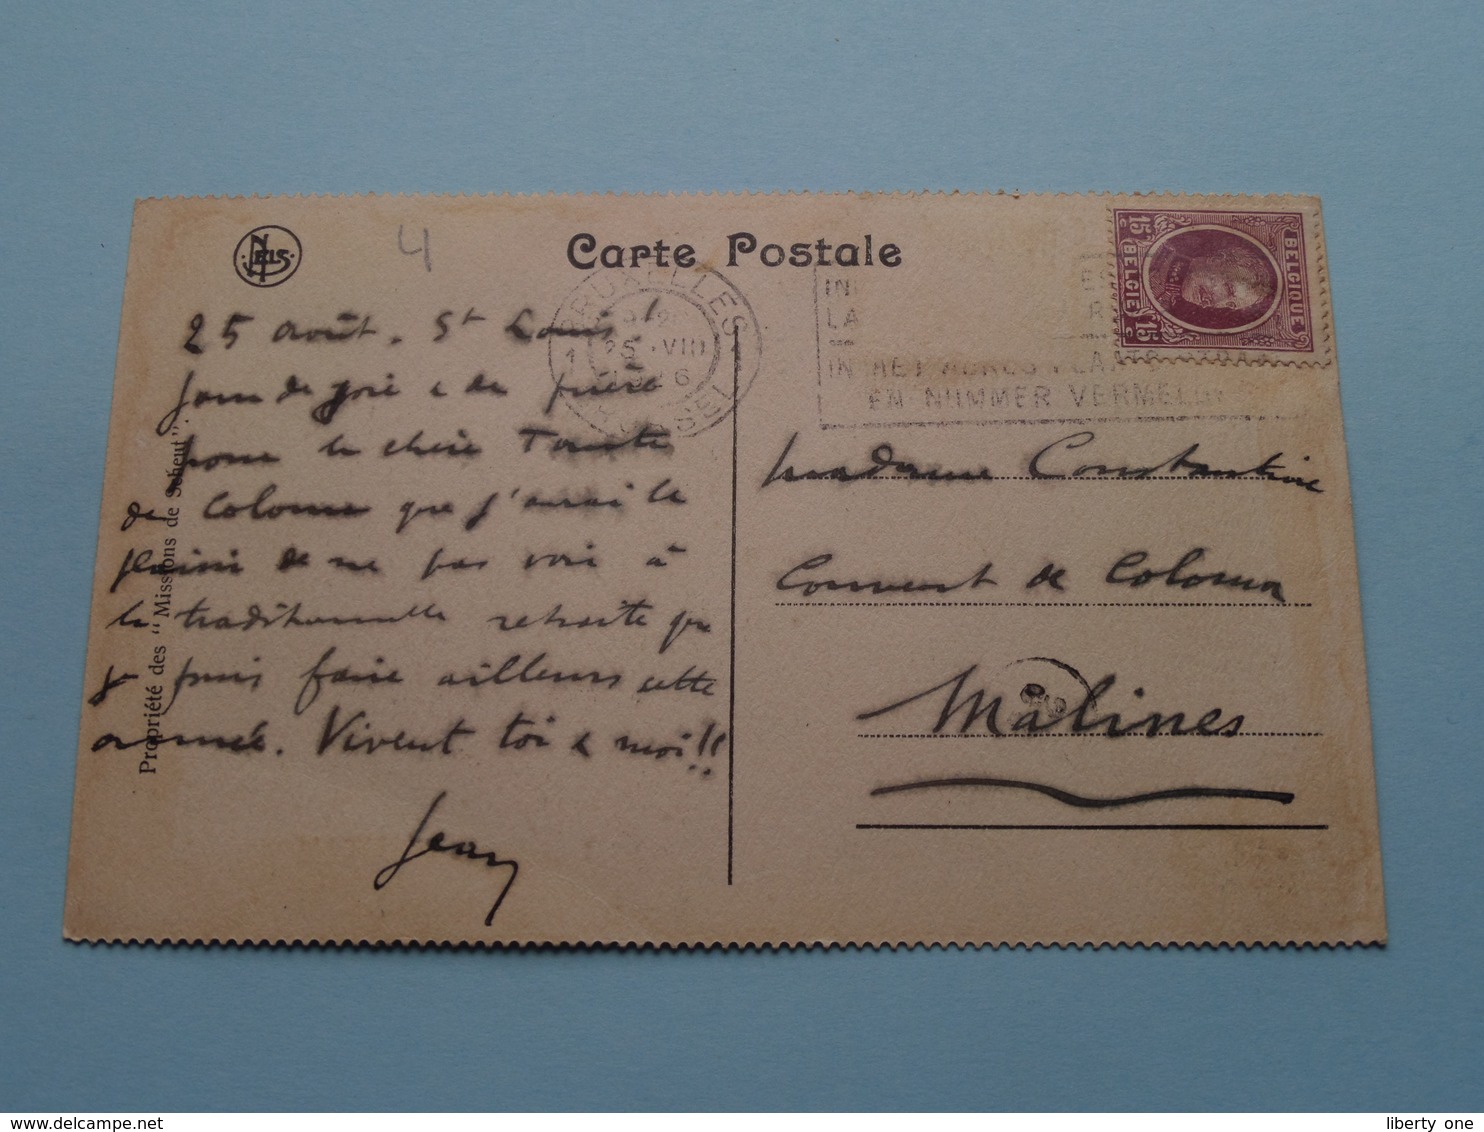 NELS
4
Carte Postale
BELGIE BELGIQUE
15 c 15 c
BRUXELLES
25 VIII
BRUSSEL
IN
LA
IN HET ADRES PLAATS
EN NUMMER VERMELD
25 août. St Louis!
Jour de joie & de prière
pour la chère Tante
de Coloma que j'aurai le
plaisir de ne pas voir à
la traditionnelle retraite que
je puis faire ailleurs cette
année. Vivent toi & moi!!
Jean
Propriété des "Missions de Scheut".
Madame Constantine
Couvent de Coloma
Malines
liberty one